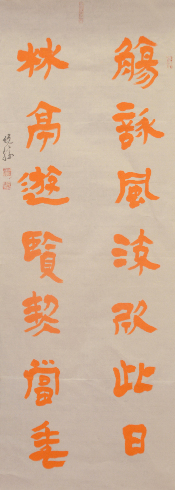 觴詠風流欣此日
林亭遊覽契當年